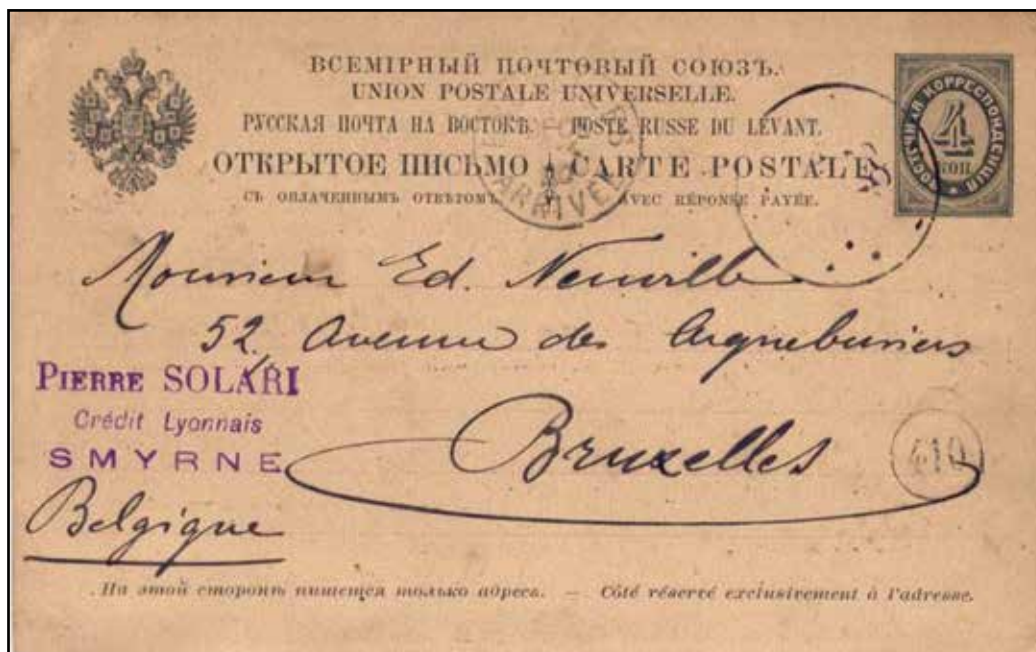 ВСЕМІРНЫЙ ПОЧТОВЫЙ СОЮЗЪ.
UNION POSTALE UNIVERSELLE.
РУССКАЯ ПОЧТА НА ВОСТОКѢ. POSTE RUSSE DU LEVANT.
ОТКРЫТОЕ ПИСЬМО CARTE POSTALE
СЪ ОПЛАЧЕННЫМЪ ОТВѢТОМЪ. AVEC RÉPONSE PAYÉE.
КОРРЕСПОНДЕНЦІЯ
4
КОП
ARRIVEE
Monsieur Ed. Neuville
52, Avenue des
PIERRE SOLARI
Crédit Lyonnais
SMYRNE
Bruxelles
410
Belgique
На этой сторонѣ пишется только адресъ. — Côté réservé exclusivement à l'adresse.